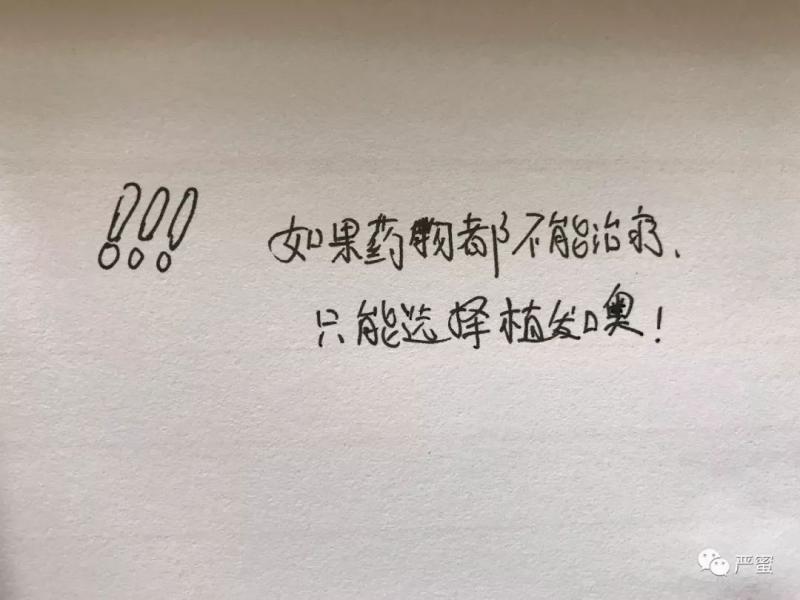 !!! 如果药物都不能治疗、
只能选择植发噢!
严蜜